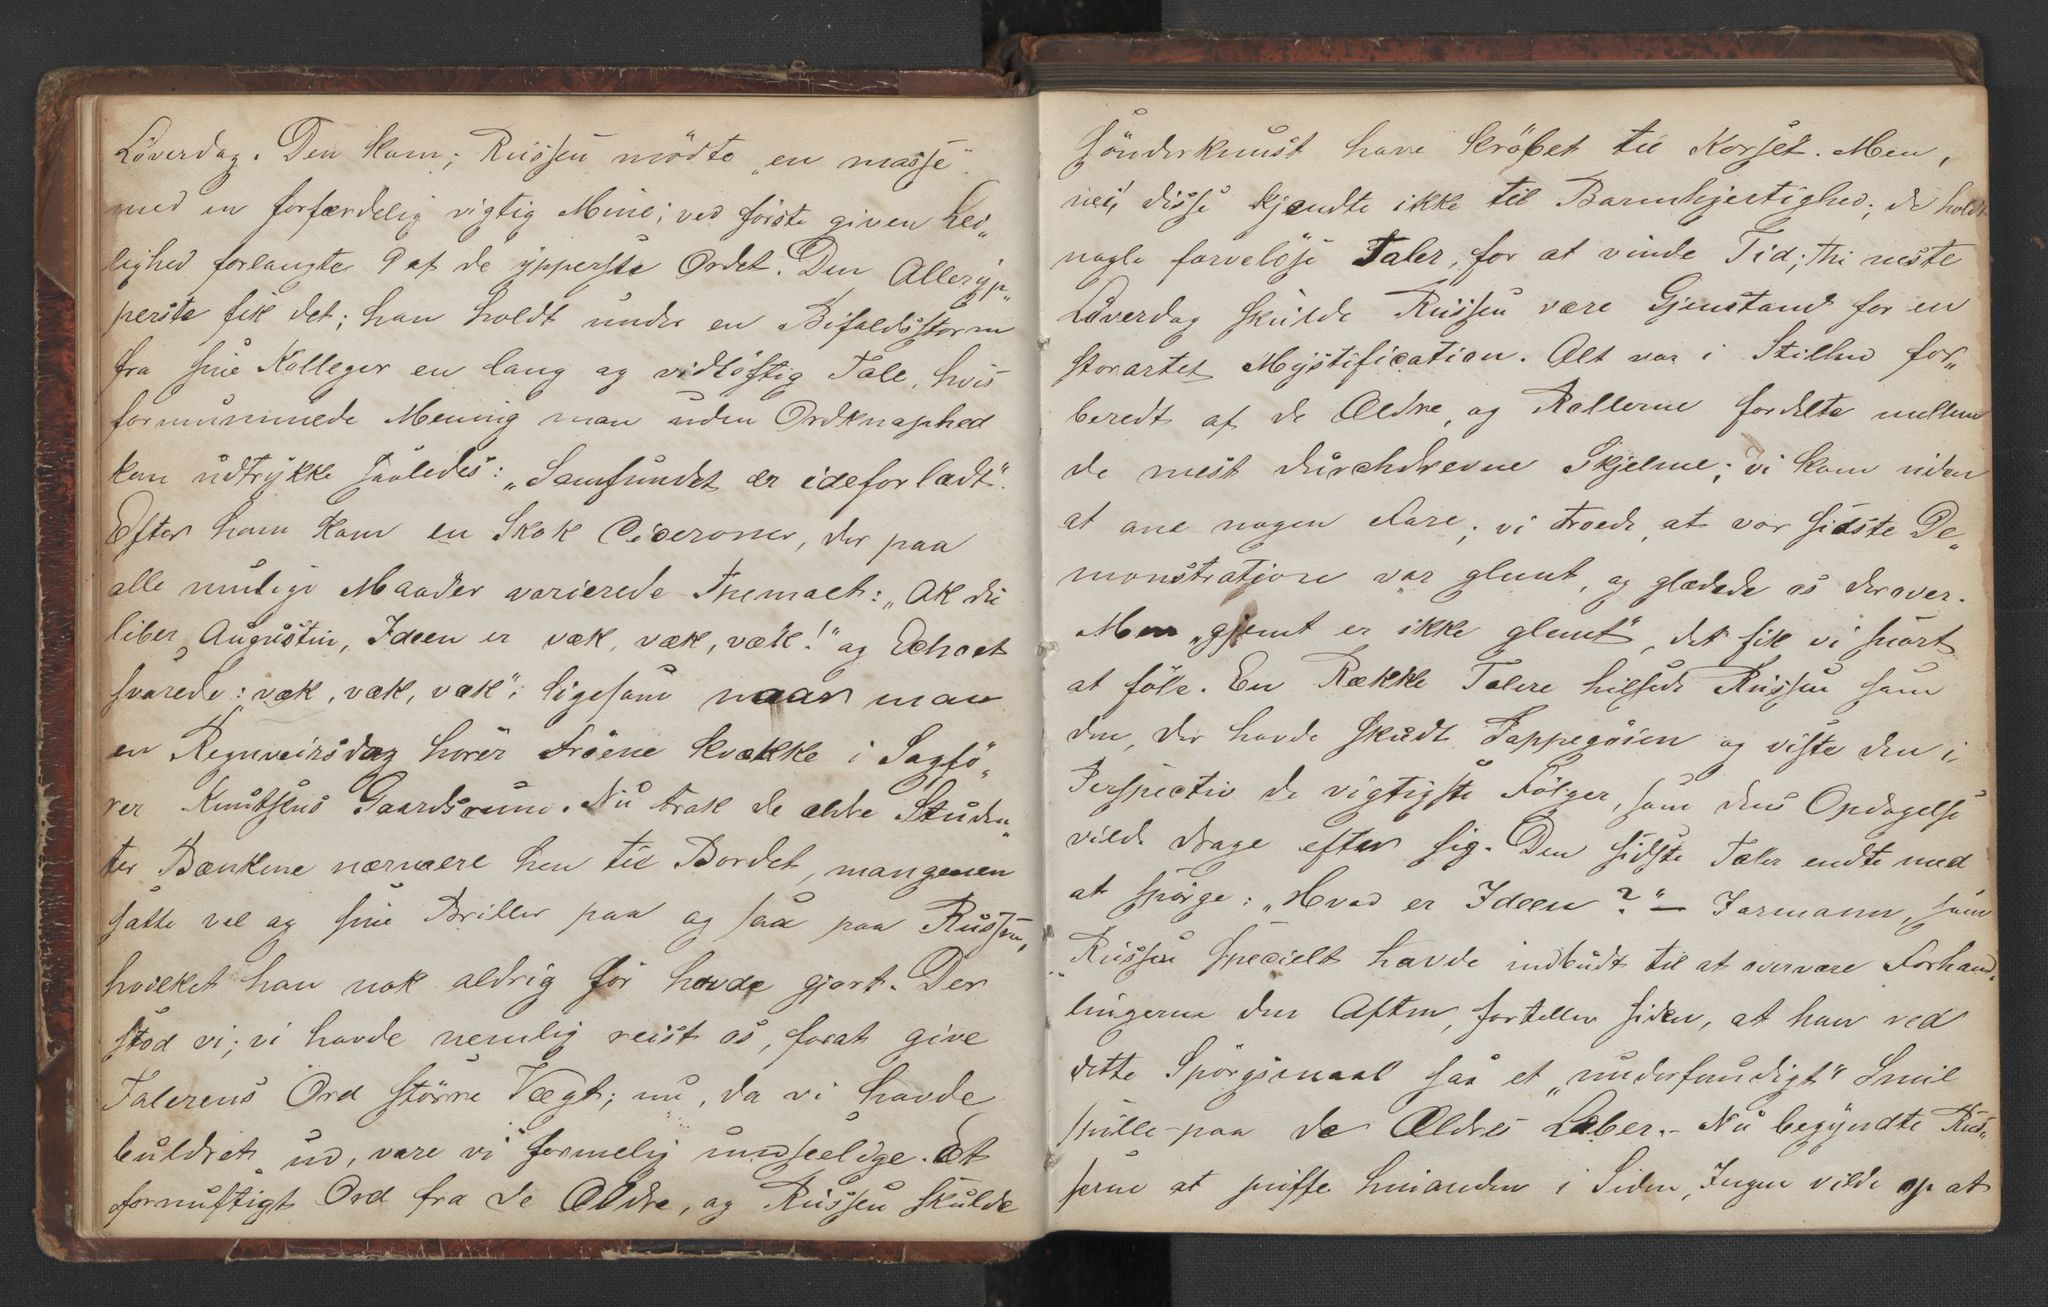 Löverdag. Den kom; Russen mödte „en masse”
med en forfærdelig vigtig Mine; ved förste given Lei„
lighed forlangte 9 af de ypperste Ordet. Den Alleryp„
perste fik det; han holdt under en Bifaldsstorm
fra sine Kolleger en lang og vidlöftig Tale, hvis
formummede Mening man uden Ordknaphed
kan udtrykke saaledes: „Samfundet er ideforladt”.
Efter ham kom en Skok Ciceroner, der paa
alle mulige Maader varierede Themaet: „Ak du
liber Augustin, Ideen er væk, væk, væk!” og Echoet
svarede: „væk, væk, væk”; ligesom naar man
en Regnveirsdag hører Fröene kvække i Sagfö„
rer Knutsens Gaardsrum. Nu trak de ældre Studen„
ter Bænkene nærmere hen til Bordet, mangenen
satte vel og sine Briller paa og saa paa Russen,
hvilket han nok aldrig för havde gjort. Der
stod vi; vi havde nemlig reist os, forat give
Talerens Ord större Vægt; nu, da vi havde
buldret ud, vare vi formelig undseelige. Et
fornuftigt Ord fra de Ældre, og Russen skulde
sönderknust have kröbet til Korset. Men,
nei, disse kjendte ikke til Barmhjertighed; de holdt
nogle farvelöse Taler, for at vinde Tid; thi neste
Löverdag skulde Russen være Gjenstand for en
storartet Mystification. Alt var i Stilhed for„
beredt af de Ældre, og Rollerne fordelte mellem
de mest durchdrevne Skjelme; vi kom uden
at ane nogen Fare; vi troede, at vor sidste De„
monstration var glemt, og glædede os derover.
Men „gjemt er ikke glemt”, det fik vi snart
at föle. En Række Talere hilsede Russen som
den, der havde skudt Pappegöien og viste den i
Perspectiv de vigtigste Fölger, som dens Opdagelse
vilde drage efter sig. Den sidste Taler endte med
at spörge: „Hvad er Ideen?” — Jarmann, som
Russen specielt havde indbudt til at overvære Forhand„
lingerne den Aften, forteller siden, at han ved
dette Spörgsmaal saa et „underfundigt” Smil
spille paa de Ældres Læber. – Nu begyndte Rus„
serne at puffe hinanden i Siden, Ingen vilde op at